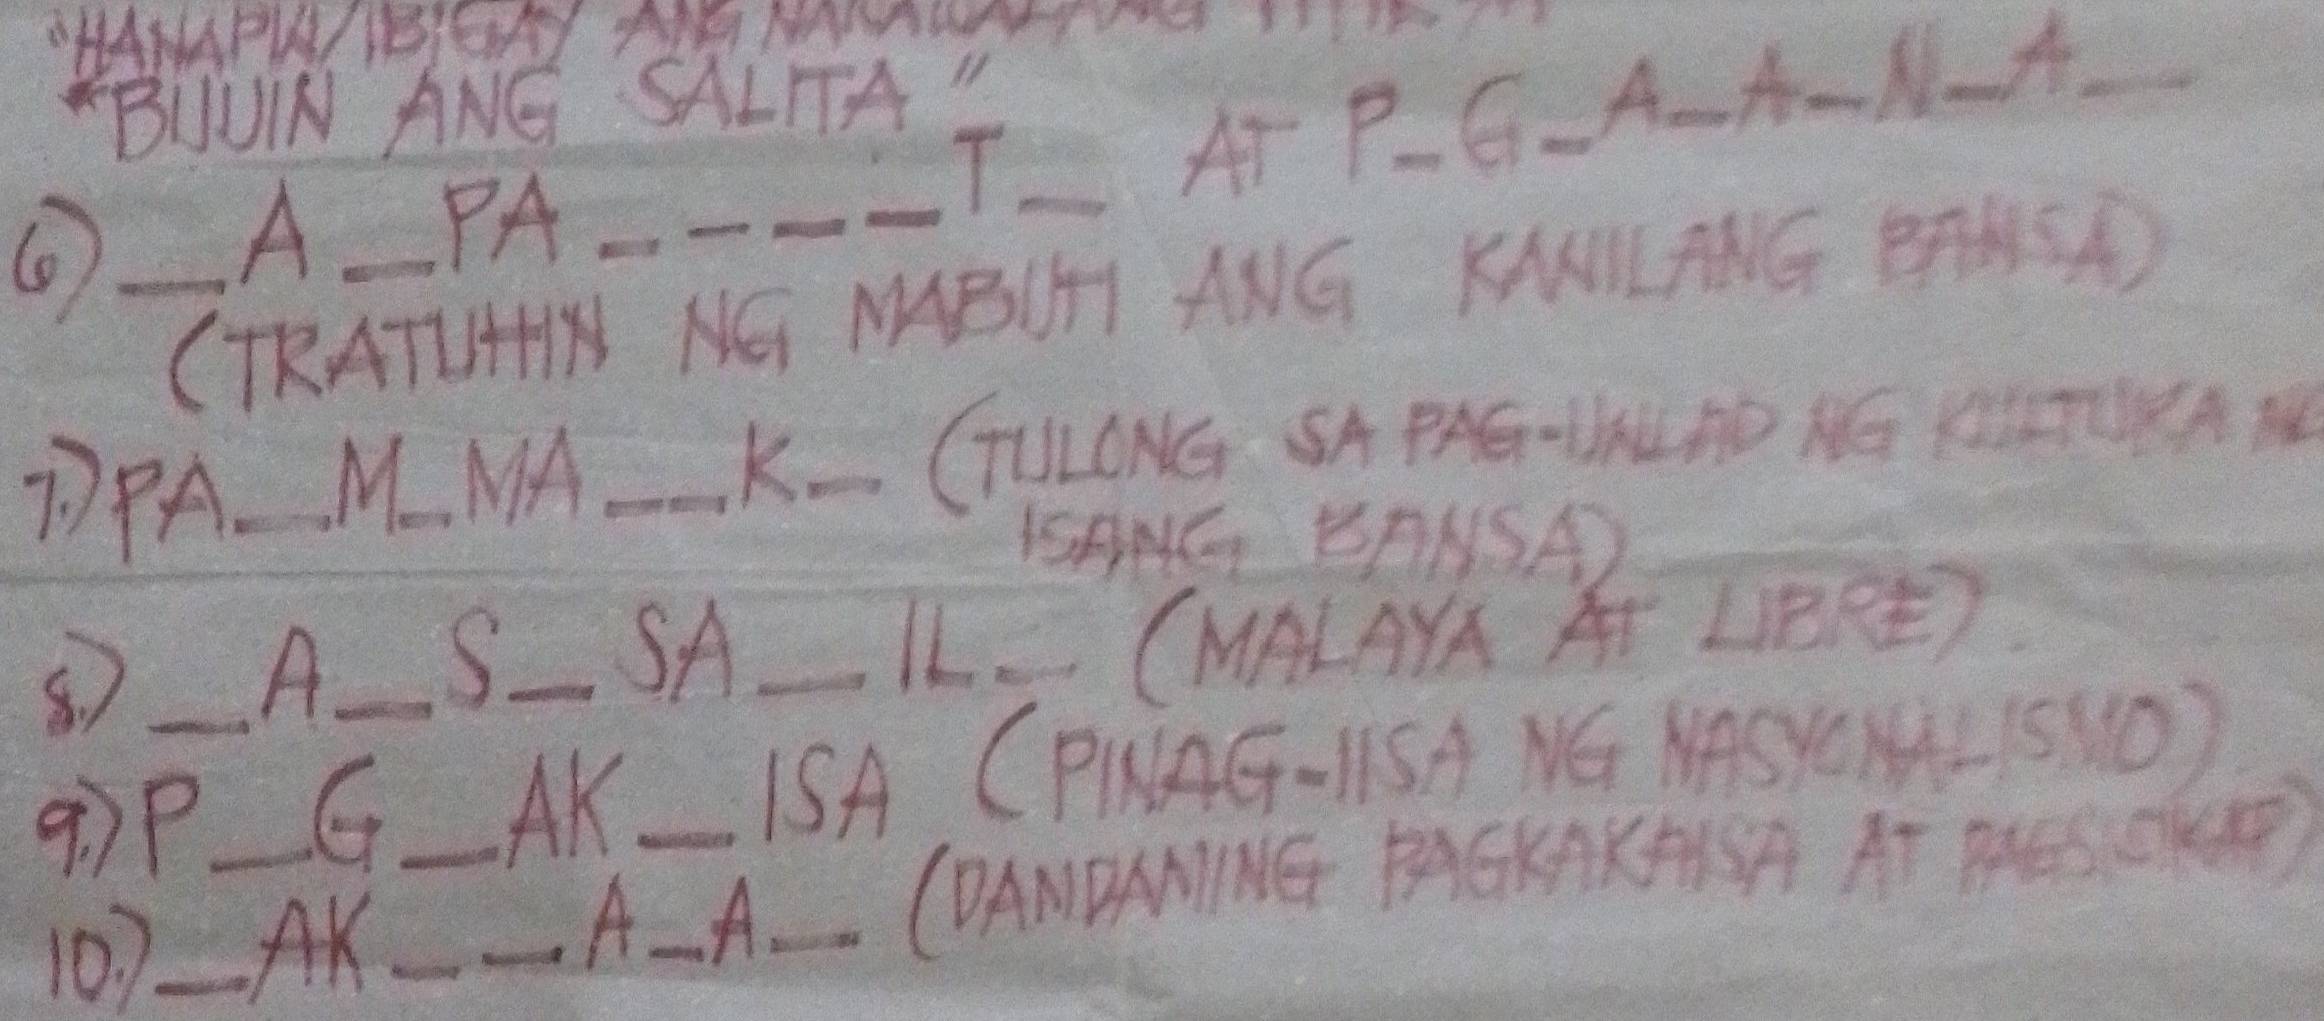 "HANAPIN/IBIGAY ANG NAWAWALANG TITIK SA
*BUUIN ANG SALITA"
6) _A_PA____T_ AT P_G_A_A_N_A_
(TRATUHIN NG MABUTI ANG KANILANG BANSA)
7.) PA_M_MA__K_ (TULONG SA PAG-UNLAD NG KULTURA NG
ISANG BANSA)
8.) _A_S_SA_IL_ (MALAYA AT LIBRE)
9.) P_G_AK_ISA (PINAG-IISA NG NASYONALISMO)
10.) _AK__A_A_ (DANDAMING PAGKAKAISA AT PAGSISIKAP)